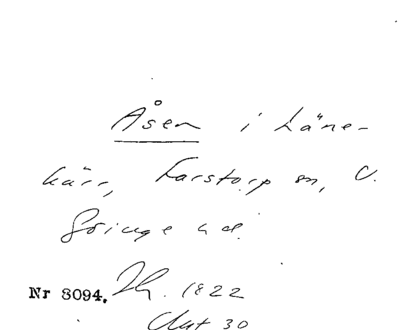 Åsen i Läne-
kärr, Farstorp sn, V.
Göinge hd.
Nr 8094. Jh. 1822
Akt 30